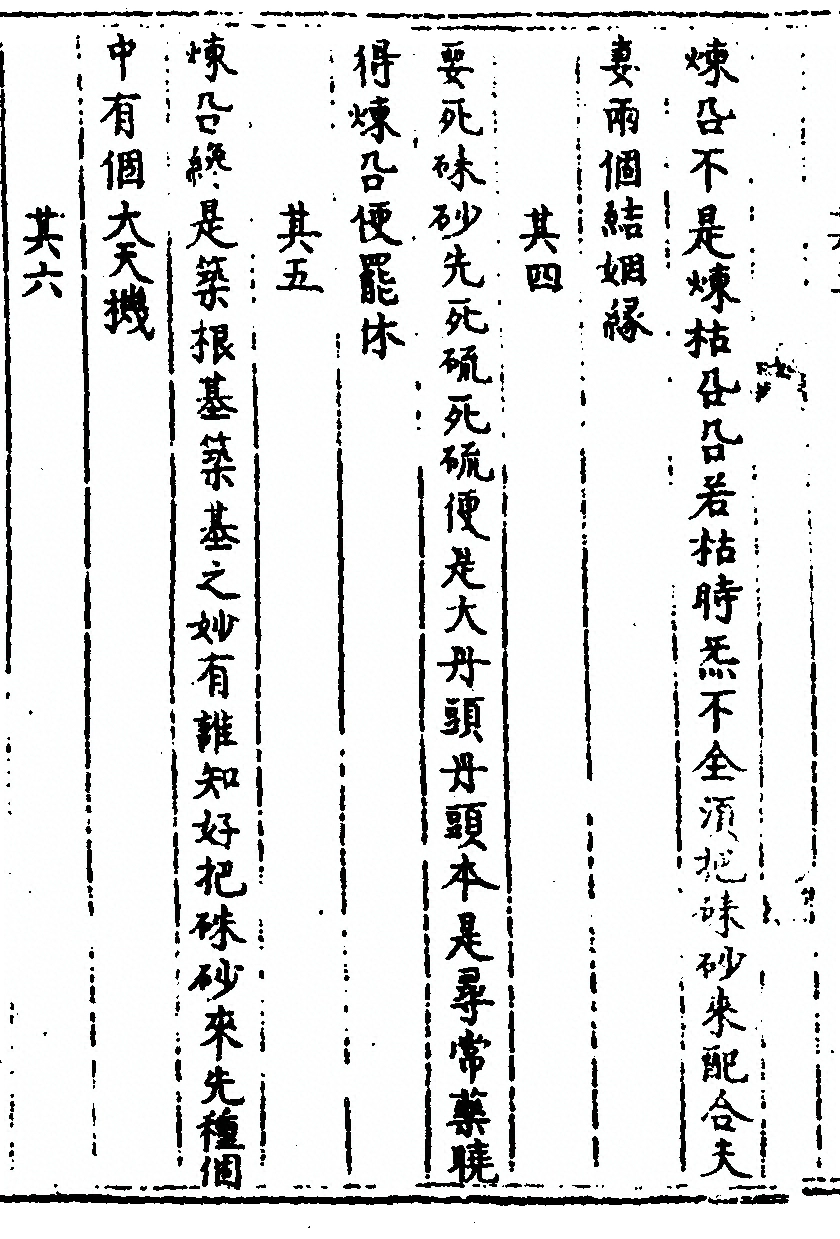 煉鉛不是煉枯鉛鉛若枯時炁不全須把硃砂來配合夫
妻兩個結姻緣
其四
要死硃砂先死硫死硫便是大丹頭丹頭本是尋常藥曉
得煉鉛便罷休
其五
煉鉛終是築根基築基之妙有誰知好把硃砂來先種個
中有個大天機
其六